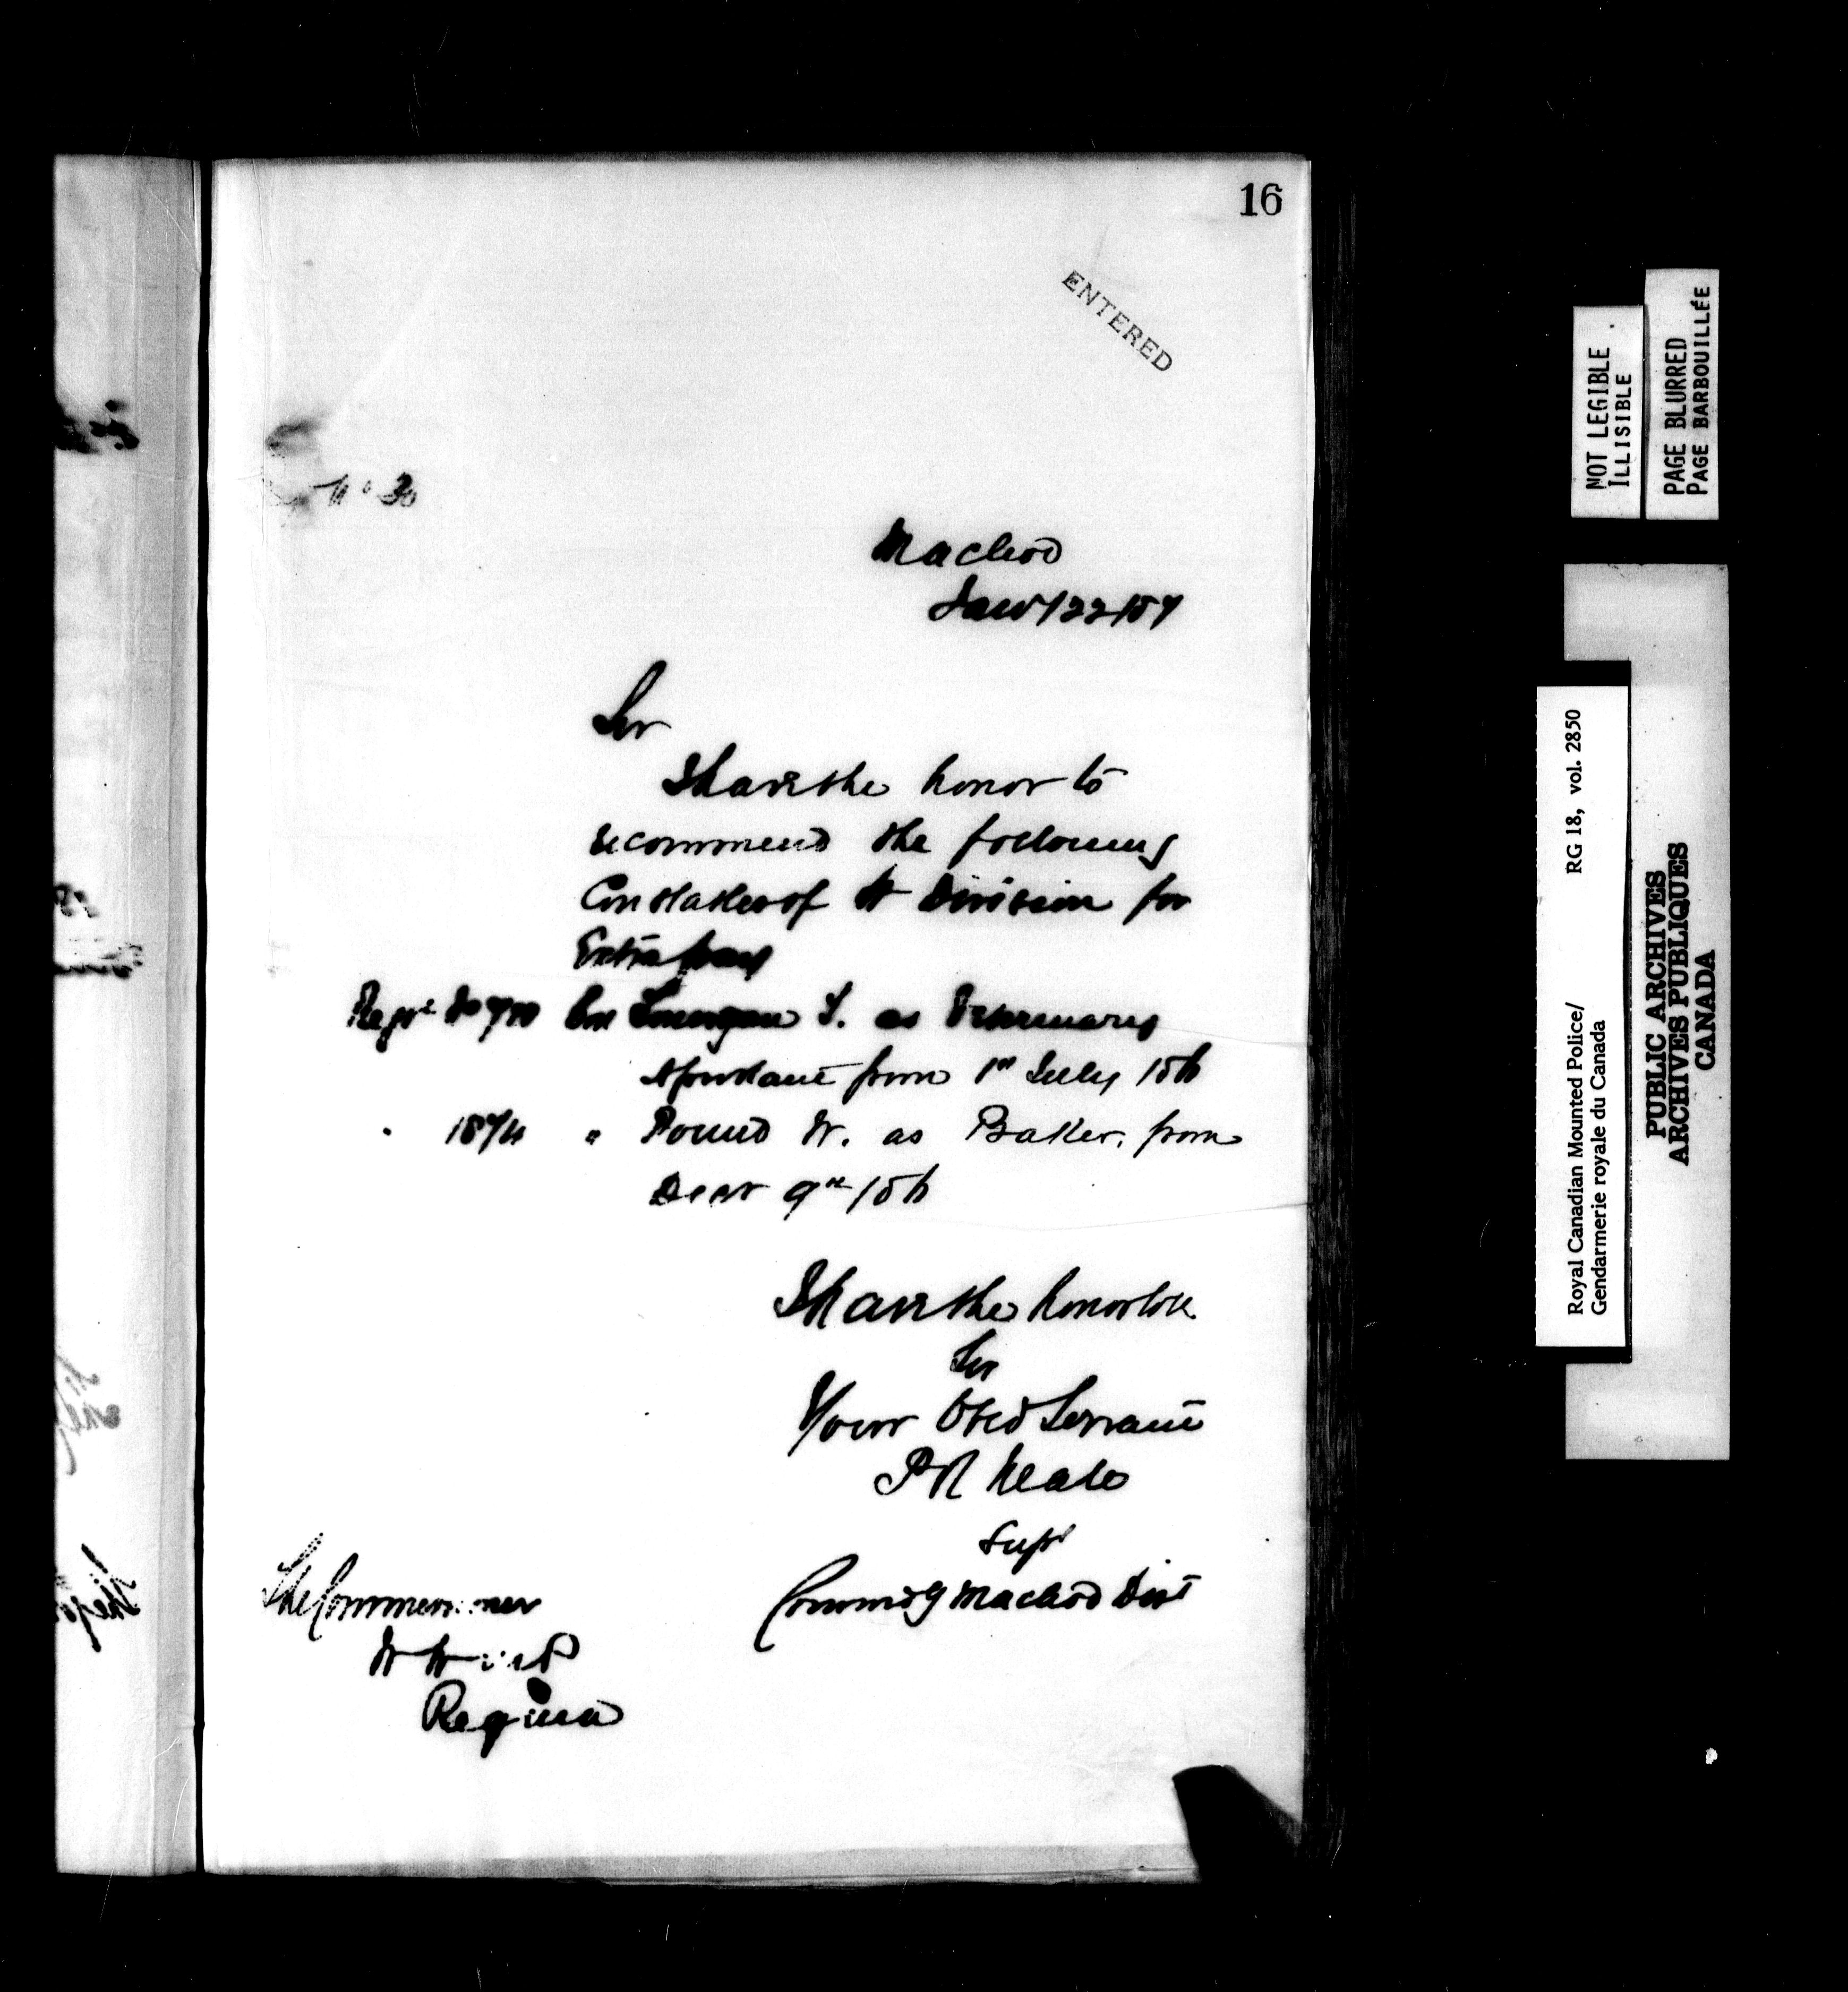 16
ENTERED
No 30
Macleod
Jany 22/87
Sir
I have the honor to
recommend the following
Constables of H Division for
Extra pay
Regt No Con S. as Veterinary
Assistant from 1st July, 86
" 1874 " Pound W. as Baker, from
Decr 9th/86
I have the honor to be
Sir
Your Obed Servant
P R Neale
Supt
Commdg Macleod Dist
The Commissioner
N W M P
Regina
NOT LEGIBLE
ILLISIBLE
PAGE BLURRED
PAGE BARBOUILLÉE
Royal Canadian Mounted Police/ RG 18, vol. 2850
Gendarmerie royale du Canada
PUBLIC ARCHIVES
ARCHIVES PUBLIQUES
CANADA